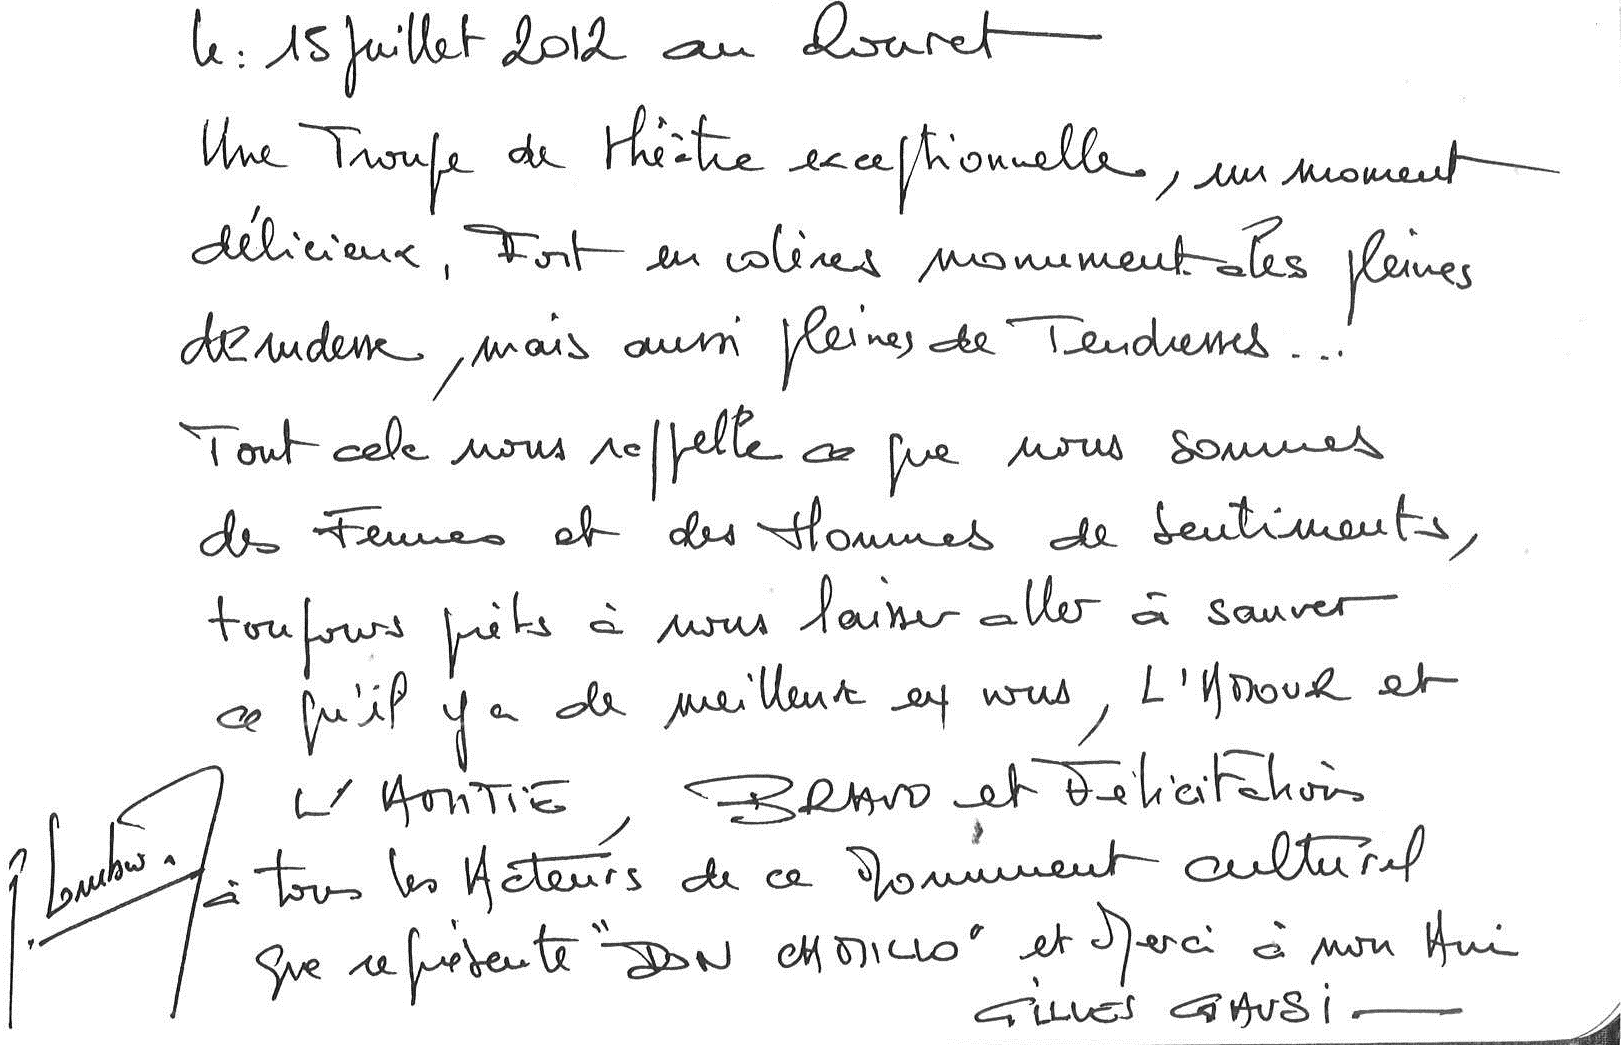 le : 15 juillet 2012 au Rouret
Une Troupe de théâtre exceptionnelle, un moment
délicieux, Fort en colères monumentales pleines
de rudesse, mais aussi pleines de Tendresses...
Tout cela nous rappelle ce que nous sommes
des Femmes et des Hommes de sentiments,
toujours prêts à nous laisser aller à sauver
ce qu'il y a de meilleur en nous, L'AMOUR et
L'AMITIE, BRAVO et Félicitations
à tous les Acteurs de ce Monument culturel
que représente "DON CAMILLO" et Merci à mon Ami
GILLES GAUSI